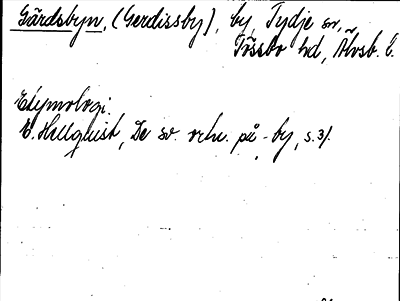 Gärdsbyn, (Gerdissby), by, Tydje sn,
Tössbo hd, Älvsb. l.
Etymologi.
E. Hellquist, De sv. ortn. på -by, s. 31.